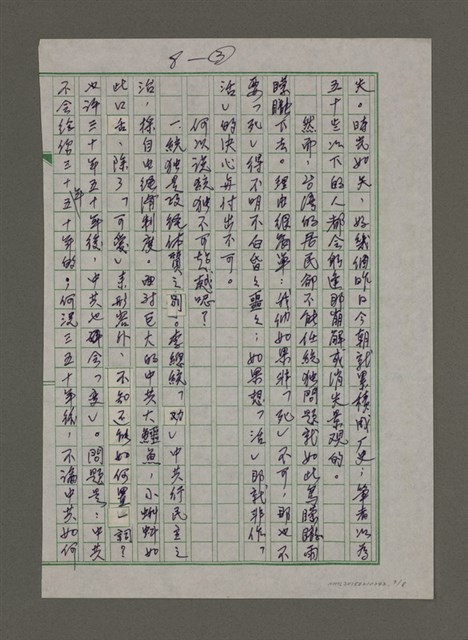 8—③
失。時光如矢,好幾個昨日今朝就累積成歷史;筆者以為
五十出以下的人都会能達那崩解或消失景观的。
然而,台灣的居民卻不能任統独問題就如此篤矇矓而
矇矓下去。理由很簡單:我们如果非「死」不可,那也不
要「死」得不明不白昏之噩之;如果想「活」那就非作「
活」的決心与付出不可。
何以说統独不可超越呢?
一統独是政經体質之別。李總統「劝」中共行民主之
治,採自由經濟制度。面对巨大的中共大鱷魚,小蝌蚪如
此口舌,除了「可愛」来形容外,不知还能如何置一詞?
也许三十年五十年後,中共也確会「变」。問題是:中共
不会给你三十五十年的。何況三五十年後,不論中共如何
年